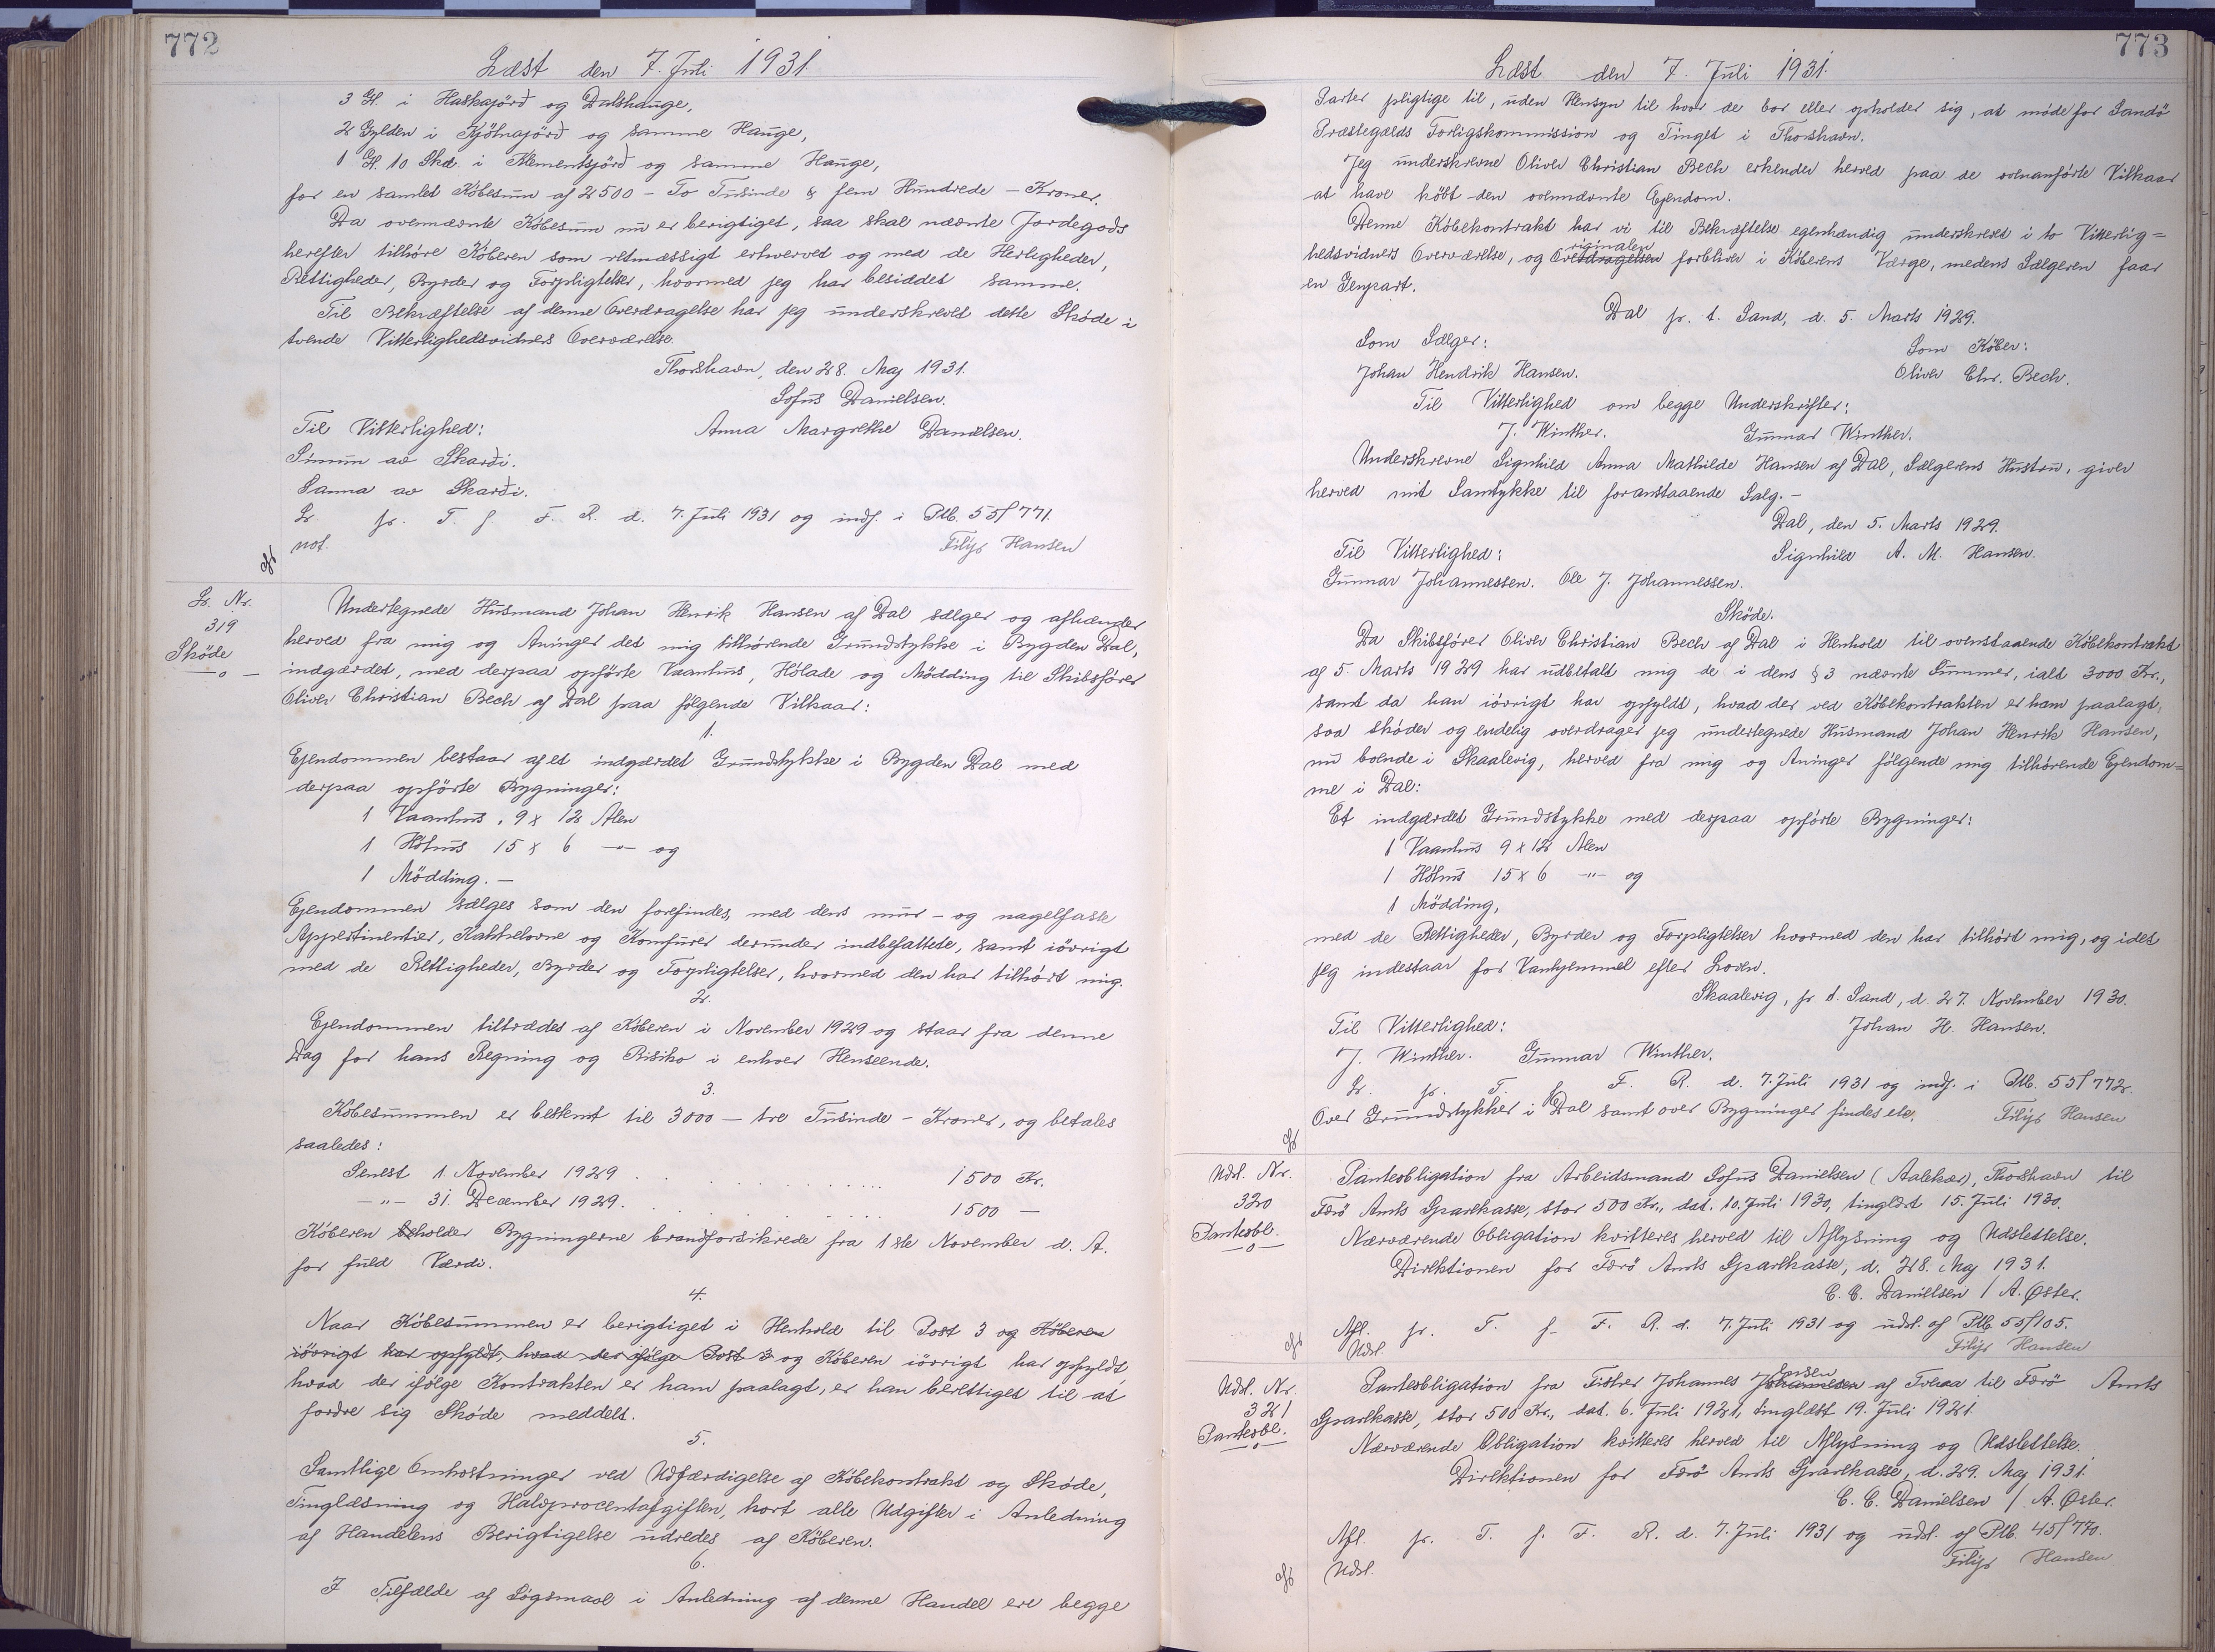 772
Læst den 7. Juli 1931
3 Gl. i Haskajörð og Dalshauge,
2 Gylden i Kjölnajörð og samme Hauge,
1 Gl. 10 Skd. i Klementsjörð og samme Hauge,
for en samlet Købesum af 2500 - To Tusinde & fem Hundrede - Kroner.
Da ovennævnte Købesum nu er berigtiget, saa skal nævnte Jordegods
herefter tilhöre Köberen som retmæssigt erhvervet og med de Herligheder,
Rettigheder, Byrder og Forpligtelser, hvormed jeg har besiddet samme.
Til Bekræftelse af denne Overdragelse har jeg underskrevet dette Sköde i
tvende Vitterlighedsvidners Overværelse.
Thorshavn, den 28. Maj 1931.
Sofus Danielsen.
Til Vitterlighed: Anna Margrethe Danielsen.
Símun av Skarði.
Sanna av Skarði.
Lr. pr. T. f F. R. d. 7. Juli 1931 og indf. i Ptb. 55f 771.
not. Filip Hansen
Lr. Nr.
319
Sköde
—o—
Undertegnede Husmand Johan Henrik Hansen af Dal sælger og afhænder
herved fra mig og Arvinger det mig tilhörende Grundstykke i Bygden Dal,
indgærdet, med derpaa opförte Vaanhus, Hölade og Mödding til Skibsförer
Oliver Christian Bech af Dal paa fölgende Vilkaar:
1.
Ejendommen bestaar af et indgærdet Grundstykke i Bygden Dal med
derpaa opförte Bygninger:
1 Vaanhus, 9 x 12 Alen
1 Höhus 15 x 6 —"— og
1 Mödding. —
Ejendommen sælges som den forefindes, med dens mur- og nagelfaste
Appertinentier, Kakkelovne og Komfurer derunder indbefattede, samt iövrigt
med de Rettigheder, Byrder og Forpligtelser, hvormed den har tilhört mig.
2.
Ejendommen tiltrædes af Köberen i November 1929 og staar fra denne
Dag for hans Regning og Risiko i enhver Henseende.
3.
Köbesummen er bestemt til 3000 — tre Tusinde - Kroner, og betales
saaledes:
Senest 1. November 1929 . . . . . . . . 1500 Kr.
—"— 31. December 1929. . . . . . . . . 1500 —
Köberen beholder Bygningerne brandforsikrede fra 1ste November d. A.
for fuld Værdi.
4.
Naar Köbesummen er berigtiget i Henhold til Post 3 og Köberen
iövrigt har opfyldt, hvad der ifölge Post 3 og Köberen iövrigt har opfyldt,
hvad der ifölge Kontrakten er ham paalagt, er han berettiget til at
fordre sig Sköde meddelt.
5.
Samtlige Omkostninger ved Udfærdigelse af Köbekontrakt og Sköde,
Tinglæsning og Halvprocentafgiften, kort alle Udgifter i Anledning
af Handelens Berigtigelse udredes af Köberen.
6.
I Tilfælde af Sögsmaal i Anledning af denne Handel ere begge
773
Læst den 7. Juli 1931.
Parter pligtige til, uden Hensyn til hvor de bor eller opholder sig, at möde for Sandö
Præstegælds Forligskommission og Tinget i Thorshavn.
Jeg underskrevne Oliver Christian Bech erkender herved paa de ovenanförte Vilkaar
at have köbt den ovennævnte Ejendom.
Denne Köbekontrakt har vi til Bekræftelse egenhændig underskrevet i to Vitterlig=
hedsvidners Overværelse, og Overdragelsen riginalen forbliver i Köberens Værge, medens Sælgeren faar
en Genpart.
Dal pr. t. Sand, d. 5. Marts 1929.
Som Sælger: Som Köber:
Johan Hendrik Hansen. Oliver Chr. Bech.
Til Vitterlighed om begge Underskrifter:
J. Winther. Gunnar Winther.
Underskrevne Signhild Anna Mathilde Hansen af Dal, Sælgerens Hustru, giver
herved mit Samtykke til foranstaaende Salg. —
Dal, den 5. Marts 1929.
Til Vitterlighed: Signhild A. M. Hansen.
Gunnar Johannessen. Ole J. Johannessen.
Sköde.
Da Skibsförer Oliver Christian Bech af Dal i Henhold til ovenstaaende Köbekontrakt
af 5. Marts 1929 har udbetalt mig de i dens § 3 nævnte Summer, ialt 3000 Kr.,
samt da han iövrigt har opfyldt, hvad der ved Köbekontrakten er ham paalagt,
saa sköder og endelig overdrager jeg undertegnede Husmand Johan Henrik Hansen,
nu boende i Skaalevig, herved fra mig og Arvinger fölgende mig tilhörende Ejendom=
me i Dal:
Et indgærdet Grundstykke med derpaa opförte Bygninger:
1 Vaanhus 9 x 12 Alen
1 Höhus 15 x 6 —"— og
1 Mödding,
med de Rettigheder, Byrder og Forpligtelser hvormed den har tilhört mig, og idet
jeg indestaar for Vanhjemmel efter Loven.
Skaalevig, pr. t. Sand, d. 27. November 1930.
Til Vitterlighed: Johan H. Hansen.
J. Winther. Gunnar Winther.
Lr. pr. T. f F. R. d. 7. Juli 1931 og indf. i Ptb. 55f 772.
Over Grundstykker i Dal samt over Bygninger findes ele. Filip Hansen
Udsl. Nr.
320
Panteobl.
—o—
Panteobligation fra Arbeidsmand Sofus Danielsen (Aalekær), Thorshavn til
Færö Amts Sparekasse, stor 500 Kr., dat. 10. Juli 1930, tinglæst 15. Juli 1930.
Nærværende Obligation kvitteres herved til Aflysning og Udslettelse.
Direktionen for Færö Amts Sparekasse, d. 28. Maj 1931.
C. C. Danielsen / A. Øster.
Afl. pr. T. f. F. R. d. 7. Juli 1931 og udsl. af Ptb. 55f105.
Udsl. Filip Hansen
Udsl. Nr.
321
Panteobl.
—o—
Panteobligation fra Fisker Johannes Johannesen Jensen af Tveraa til Færö Amts
Sparekasse, stor 500 Kr., dat. 6. Juli 1921, tinglæst 19. Juli 1921
Nærværende Obligation kvitteres herved til Aflysning og Udslettelse.
Direktionen for Færö Amts Sparekasse, d. 29. Maj 1931.
C. C. Danielsen / A. Øster.
Afl. pr. T. f. F. R. d. 7. Juli 1931 og udsl. af Ptb. 45f 770.
Udsl. Filip Hansen